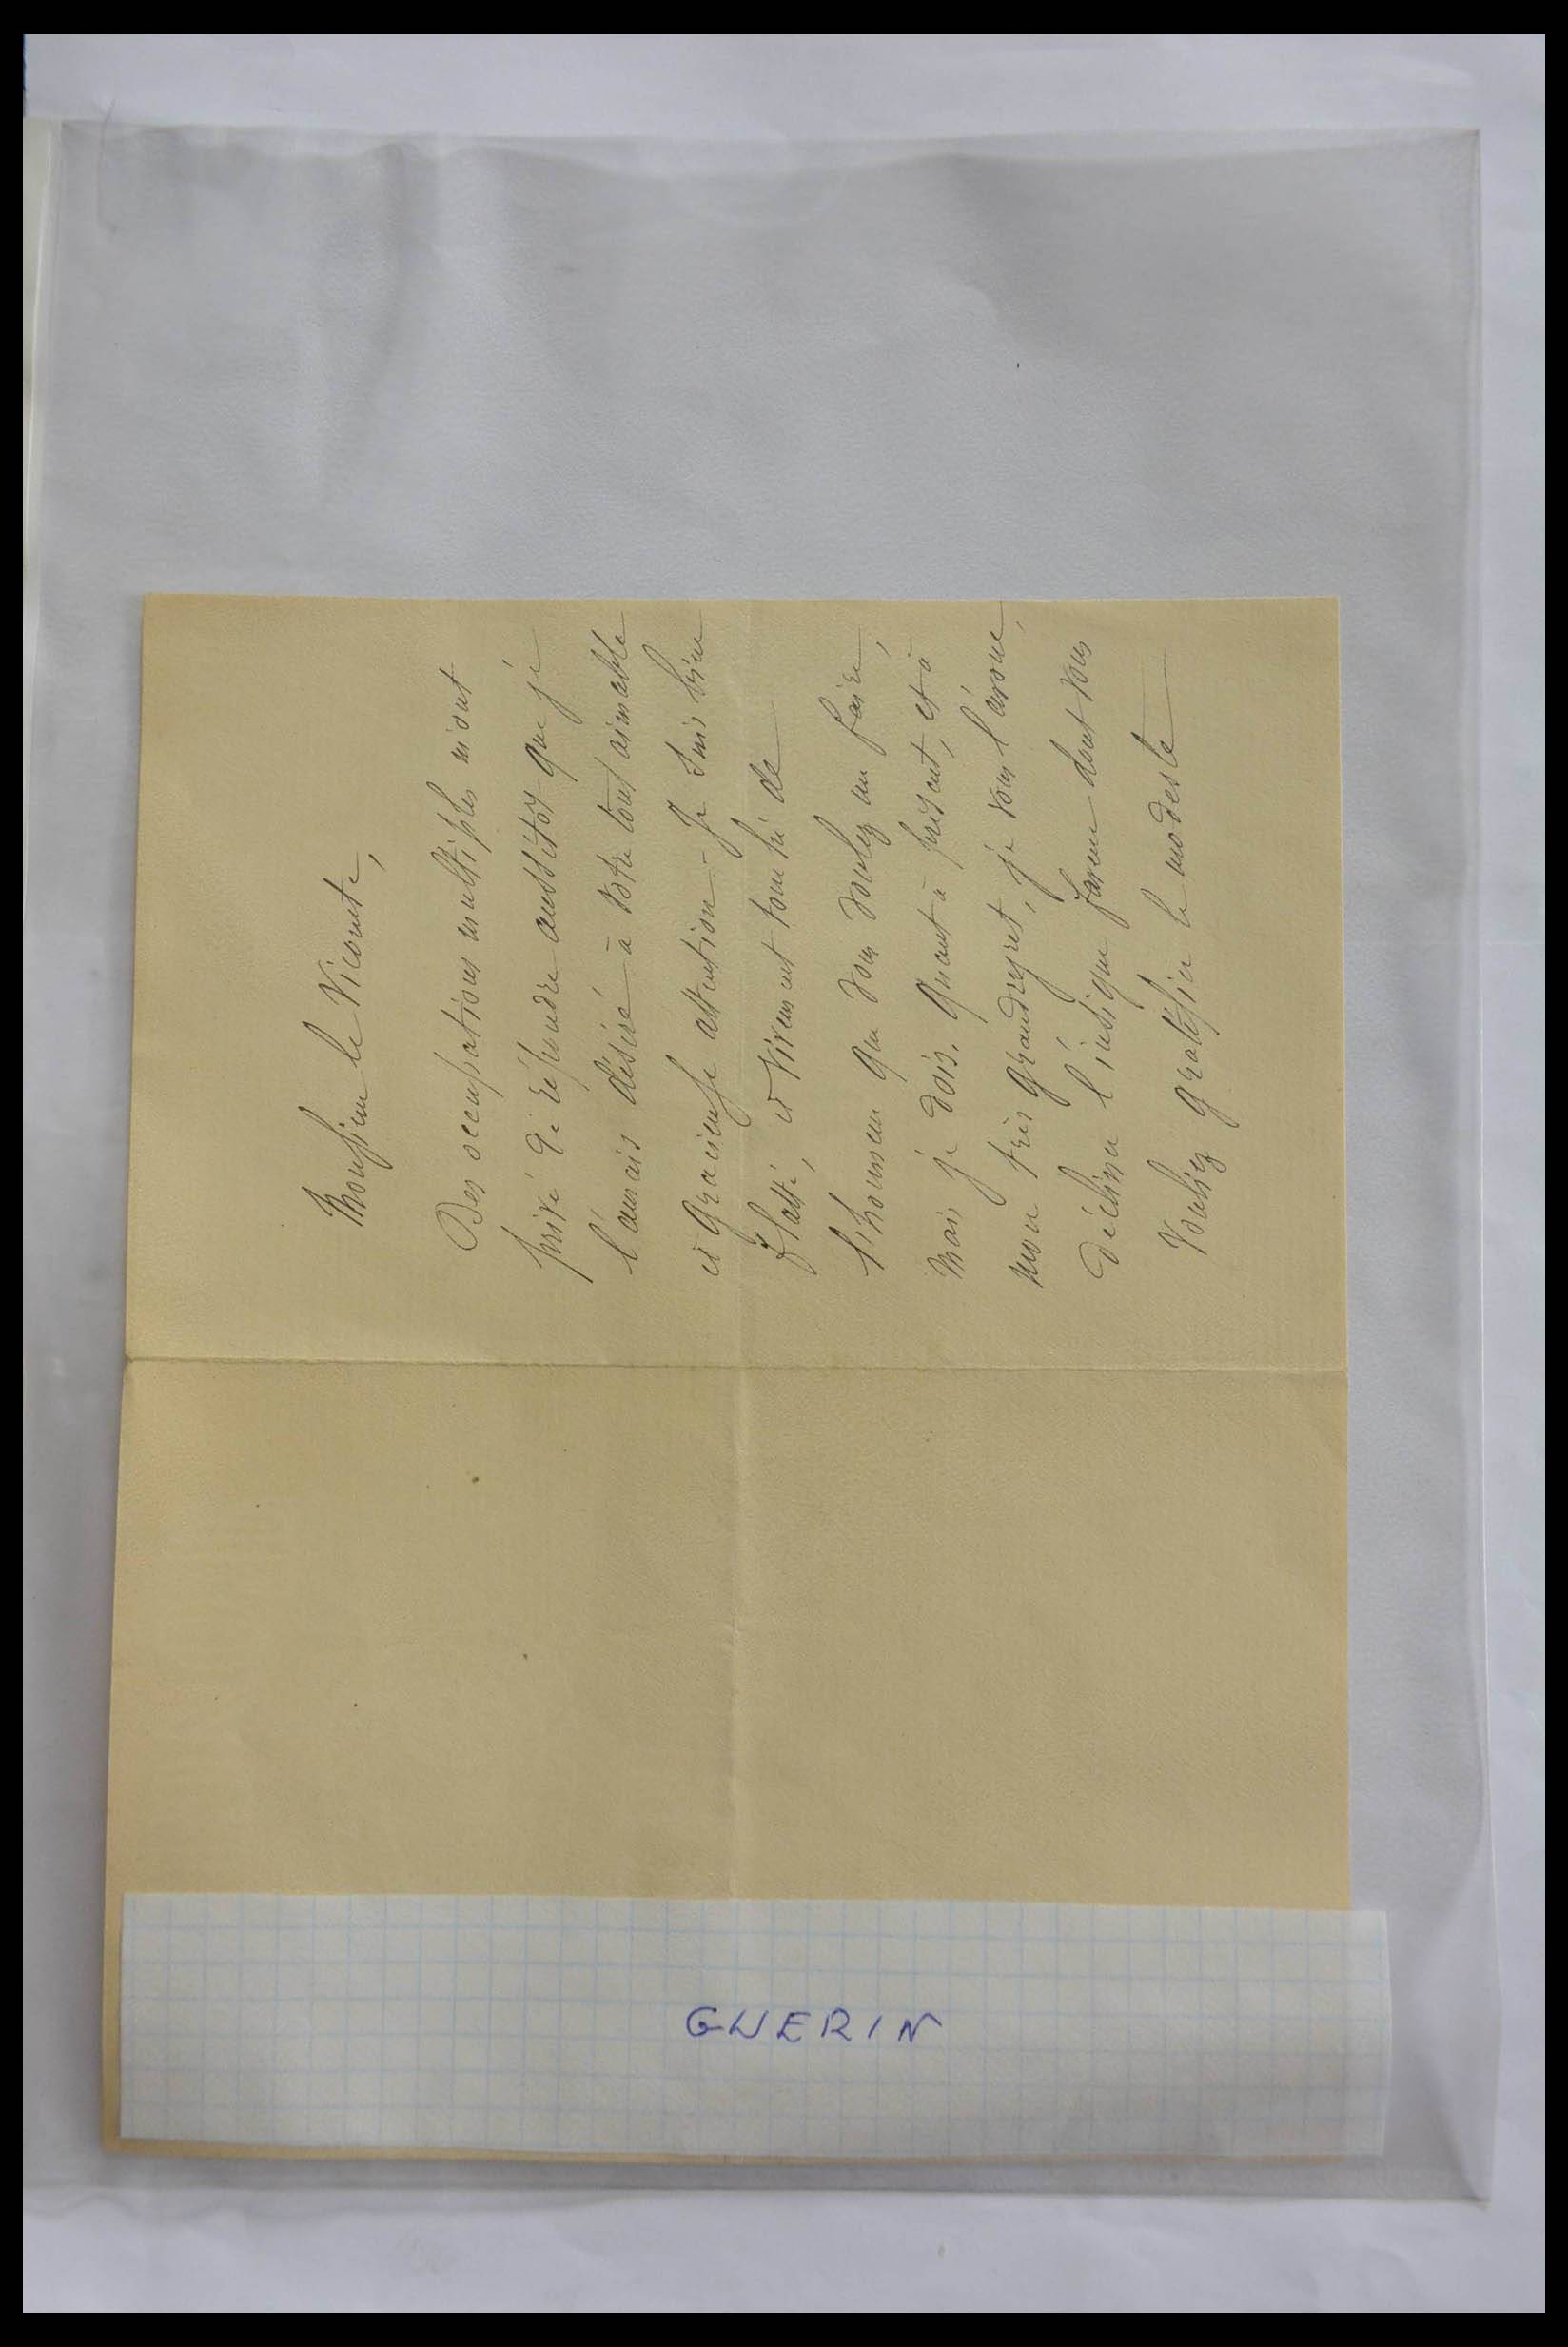 Monsieur le Vicomte,
Des occupations multiples m'ont
privé de répondre aussitôt que je
l'aurais désiré à votre tout aimable
et gracieuse attention - Je suis bien
flatté, et vivement touché de
l'honneur que vous voulez me faire,
Mais je dois, quant à présent, et à
mon très grand regret, je vous l'avoue,
décliner l'insigne faveur dont vous
vouliez gratifier le modeste
GUERIN